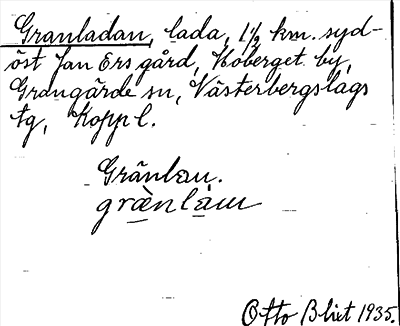 Granladan, lada, 1½ km. syd-
öst Jan Ers gård, Koberget by,
Grangärde sn, Västerbergslags
tg, Kopp l.
Gränlan.
grænlàm
Otto Blixt 1935.